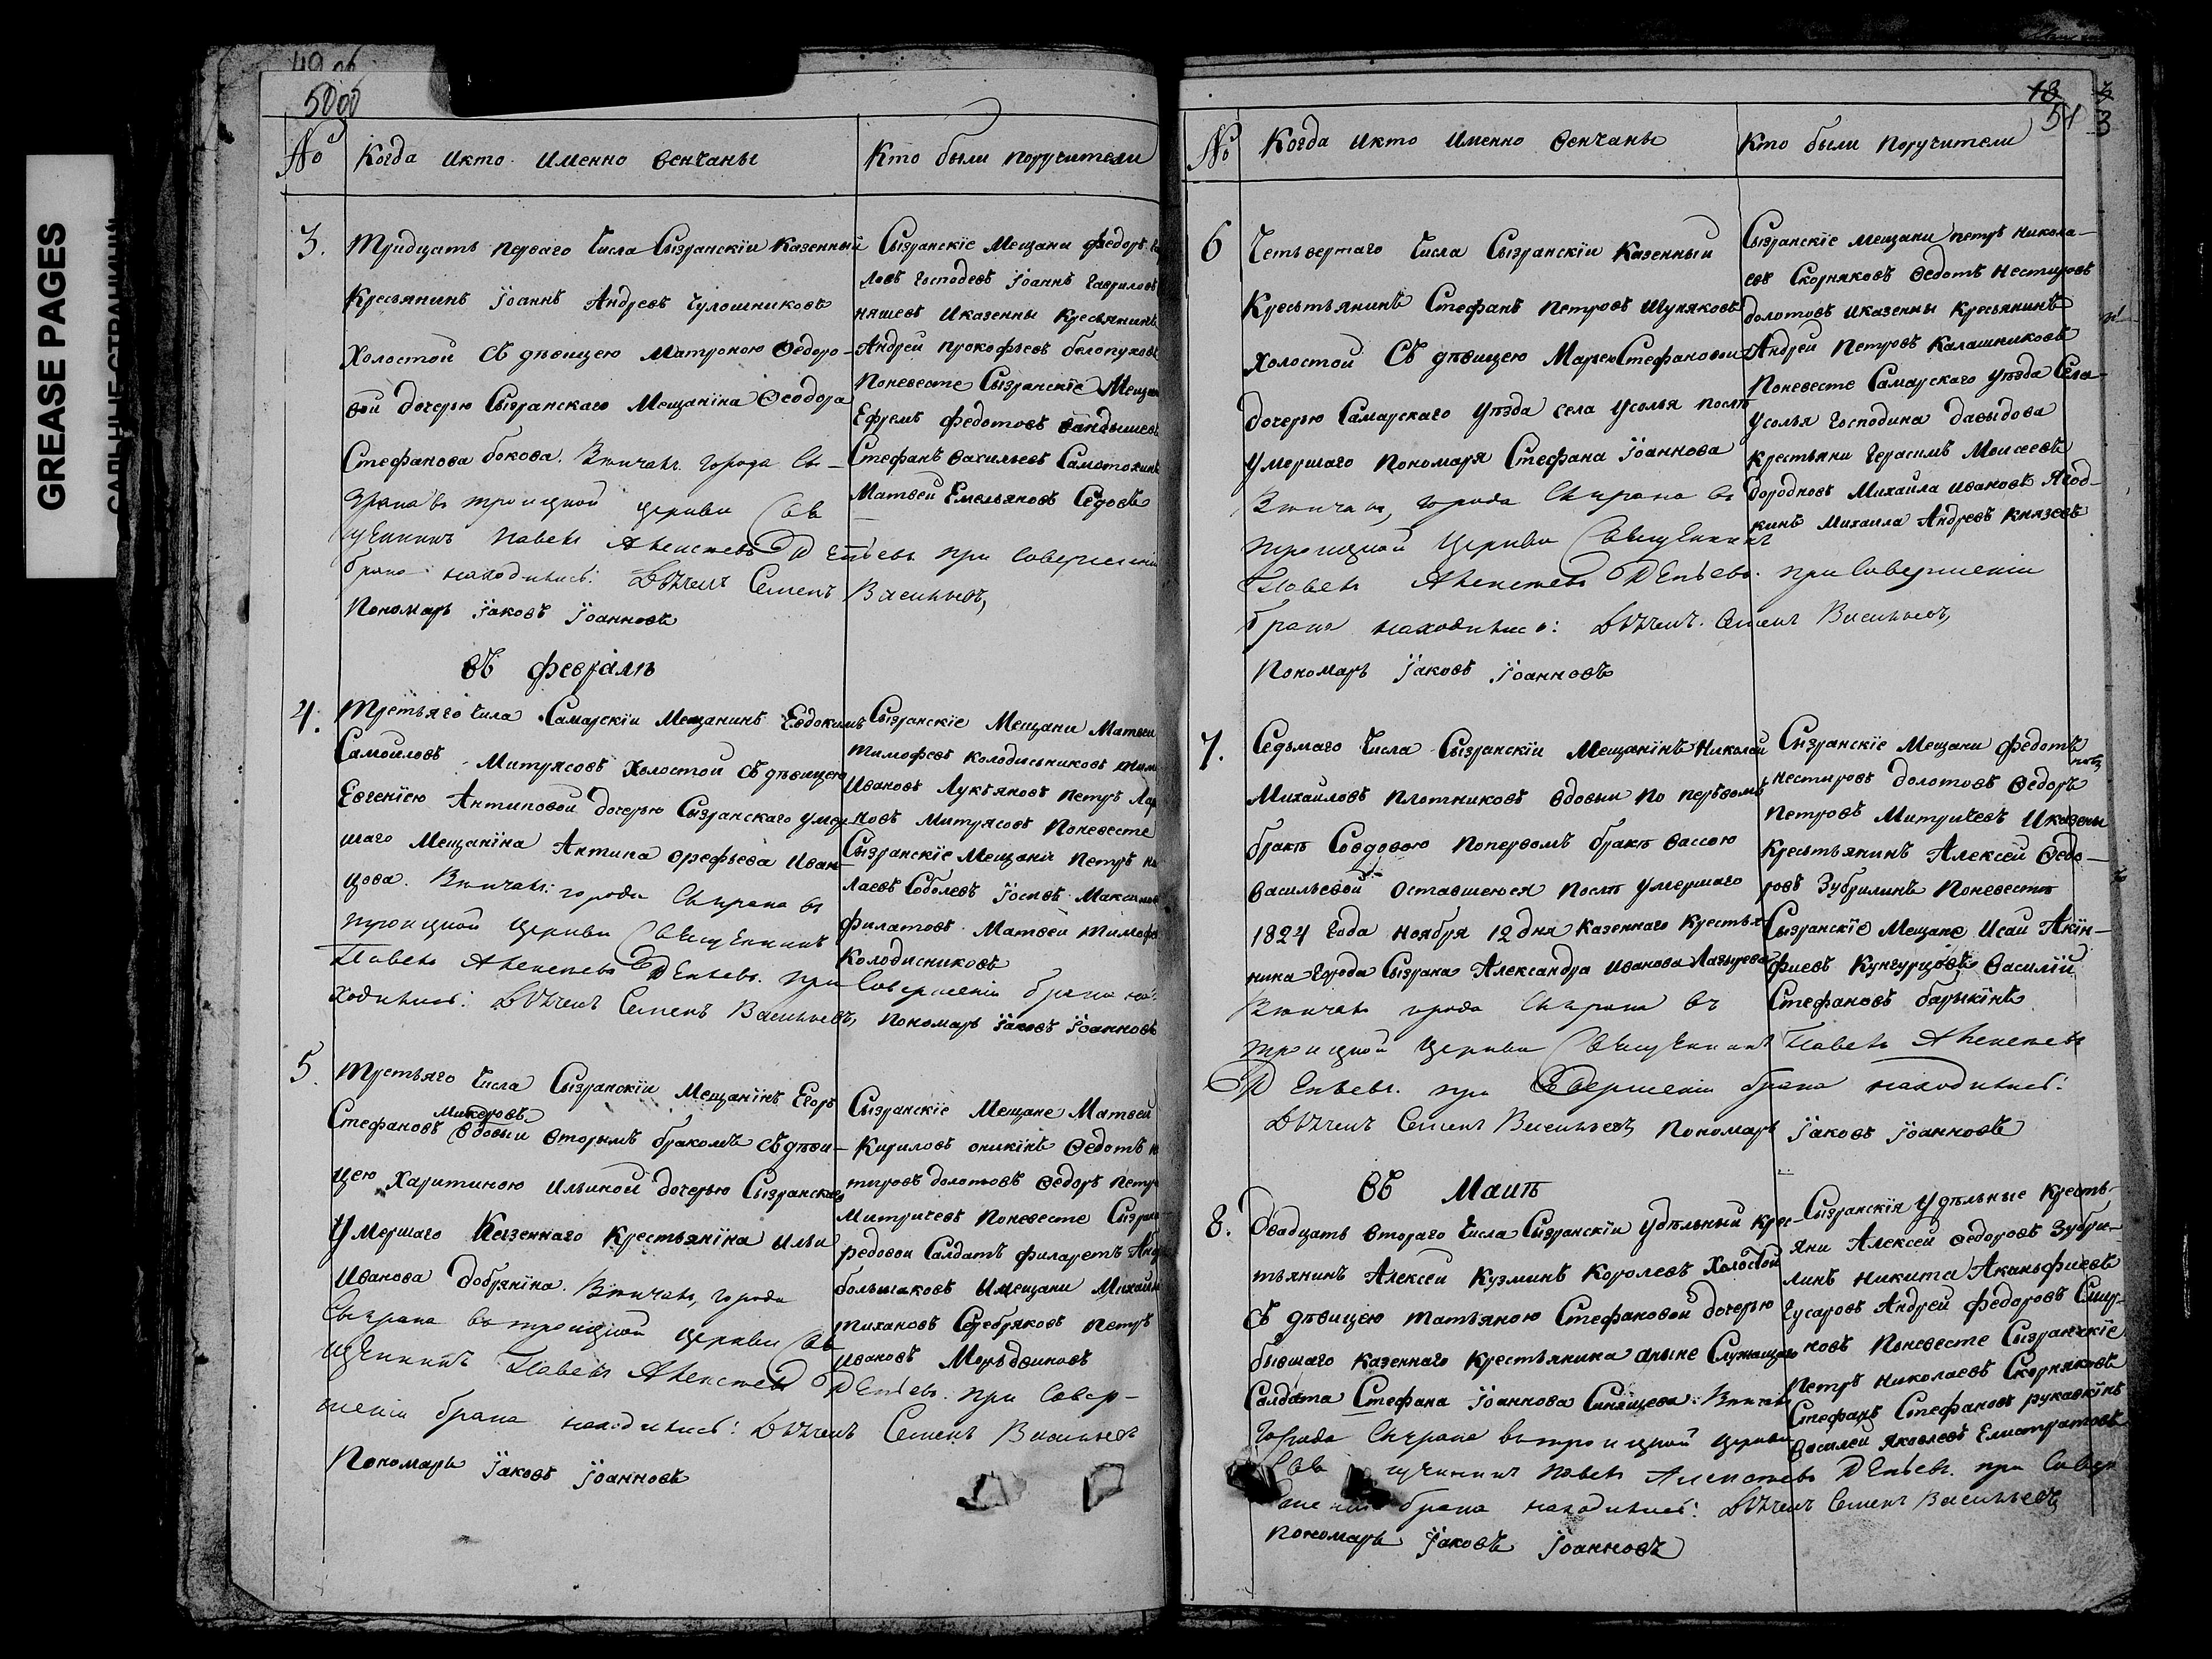 GREASE PAGES
САЛЬНЫЕ СТРАНИЦЫ
49 об
50 об
№ Когда икто именно венчаны
Кто были поручители
3. Тридцать перваго числа Сызранскiи казенный
Кресьянинъ Iоаннъ Андреевъ Чулошниковъ
Холостой съ дѣвицею Матроною Ѳедоро-
вои дочерью Сызранскаго Мещанiна Ѳеодора
Стефанова бокова. Вѣнчалъ города Сы-
зрана въ троицкой церкви Свя
щенникъ Павелъ Алексѣевъ
при совершенiи
брака находились: Дьячекъ Семенъ Васильевъ,
Пономарь Iаковъ Iоанновъ
Сызранскiе Мещани Федоръ
Господевъ Iоаннъ Гавриловъ
няшевъ иказенны кресьянинъ
Андреи прокофьевъ белопуховъ
Поневесте Сызранскiе Мещан
Ефремъ федотовъ
Стефанъ Васильевъ
Матвеи Емельяновъ Седовъ
въ февралѣ
4. Третьяго чила Самарскiи Мещанинъ Евдокимъ
Самоиловъ Митрясовъ Холостои съ дѣвицею
Евгенiею Антиповои дочерью Сызранскаго умер
шаго Мещанiна Антипа орефьева Иван
цова. Вѣнчалъ: города Сызрана въ
троицкой церкви Священникъ
Павелъ Алексѣевъ
при совершенiи брака на
ходились: Дьячекъ Семенъ Васильевъ, пономарь Iаковъ Iоанновъ
Сызранскiе Мещани Матвеи
тимофеевъ колодисниковъ
Ивановъ Лукьяновъ петръ
новъ митрясовъ поневесте
Сызранскiе Мещанiи петръ
лаевъ Соболевъ Iосифъ Максимовъ
филатовъ Матвеи тимофе
колодисниковъ
5. Третьяго числа Сызранскiи Мещанiнъ Егоръ
Микеровъ
Стефановъ вдовыи вторымъ бракомъ съ дѣви-
цею Харитиною Ильиной дочерью Сызранскаго
Умершаго Казеннаго Крестьянiна Ильи
Иванова добрянiна. Вѣнчалъ, города
Сызрана въ троицкой церкви Свя
щенникъ Павелъ Алексѣевъ
при совер-
шенiи брака находились: Дьячекъ Семенъ Васильевъ
Пономарь Iаковъ Iоанновъ
Сызранскiе Мещане Матвеи
Кириловъ оникiнъ Ѳедотъ
тировъ долотовъ Ѳедоръ петр
Митричевъ поневесте Сызран
редовои Салдатъ филаретъ Андр
большаковъ Имещани Михаил
тихановъ Серебряковъ петръ
Ивановъ Меръдвиновъ
18
51
3
№ Когда икто именно венчаны
Кто были поручители
6 Четьвертаго числа Сызранскiи Казенный
Крестьянинъ Стефанъ петровъ Шуняковъ
холостой съ дѣвицею МарьеюСтефановои
дочерью Самарскаго уѣзда села усолья послѣ
умершаго пономаря Стефана Iоаннова
Вѣнчалъ, города Сызрана въ
троицкой церкви Священникъ
Павелъ Алексѣевъ
при совершенiи
брака находились: Дьячекъ Семенъ Васильевъ,
Пономарь Iаковъ Iоанновъ
Сызранскiе мещани петръ Никола-
евъ Скорняковъ Ѳедотъ нестировъ
долотовъ иказенны кресьянинъ
Андреи Петровъ Калашниковъ
Поневесте Самарскаго уѣзда Села-
усолья господина давыдова
крестьяни герасимъ Моисеевъ
бородковъ Михаила Ивановъ Ягод-
кинъ михаила Андреевъ князевъ
7. Седьмаго числа Сызранскiи Мещанiнъ Николаи
Михаиловъ плотниковъ вдовыи по первомъ
бракѣ Совдовою попервомъ бракѣ Вассою
васильевой оставшеюся послѣ умершаго
1824 года ноября 12 дня казеннаго крестья
нина города Сызрана Александра иванова Лазырева
Вѣнчалъ города Сызрана въ
троицкой церкви Священникъ Павелъ Алексѣевъ
при совершенiи брака находились:
Дьячекъ Семенъ Васильевъ, пономарь Iаковъ Iоанновъ
Сызранскiе Мещани федотъ
нестировъ долотовъ Ѳедоръ
Петровъ Митричевъ Иказены
крестьянинъ Алексеи Ѳедо-
ровъ Зубрилинъ поневестѣ
Сызранскiе Мещане Исаи Акiн-
фиевъ Кунгурцовъ василiи
Стефановъ барыкiнъ
въ Маиѣ
8. двадцать втораго числа Сызранскiи удѣльныи крес-
тьянинъ Алексеи Кузминъ Королевъ холостой
съ дѣвицею татьяною Стефановои дочерью
бывшаго казеннаго крестьянина аныне Служащаго
Салдата Стефана Iоаннова Синящева. Вѣнчалъ
города Сызрана въ троицкой церкви
Свя щенникъ Павелъ Алексѣевъ
при совер
шенiи брака находились: Дьячекъ Семенъ Васильевъ,
пономарь Iаковъ Iоанновъ
Сызранскiя удѣльные кресть-
яни Алексеи Ѳедоровъ Зубри-
линъ никита Аканьфиевъ
гусаровъ Андреи федоровъ Смир-
новъ поневесте Сызранскiе
петръ николаевъ Скорняковъ
Стефанъ Стефановъ рукавкiнъ
василеи яковлевъ Елистратовъ